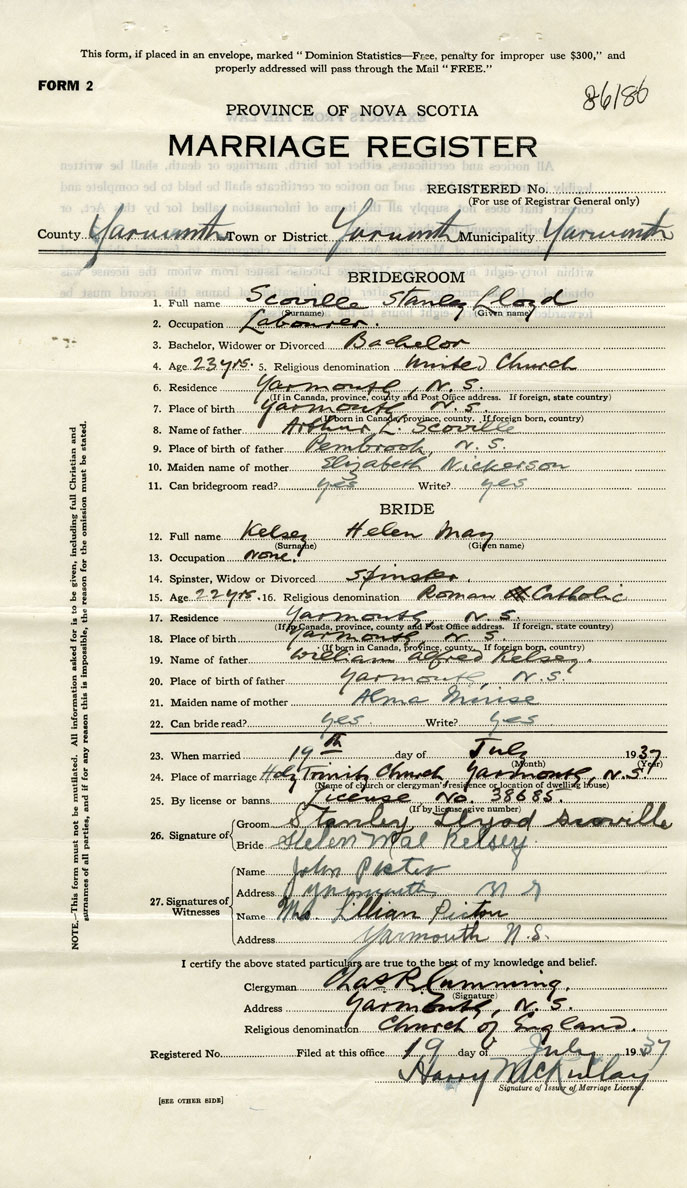 This form, if placed in an envelope, marked "Dominion Statistics—Free, penalty for improper use $300," and
properly addressed will pass through the Mail "FREE."
FORM 2
86186
PROVINCE OF NOVA SCOTIA
MARRIAGE REGISTER
REGISTERED No.
(For use of Registrar General only)
County Yarmouth Town or District Yarmouth Municipality Yarmouth
BRIDEGROOM
1. Full name Scoville Stanley Lloyd
(Surname) (Given name)
2. Occupation Labourer.
3. Bachelor, Widower or Divorced Bachelor
4. Age 23 yrs. 5. Religious denomination United Church
6. Residence Yarmouth, N.S.
(If in Canada, province, county and Post Office address. If foreign, state country)
7. Place of birth Yarmouth N.S.
(If born in Canada, province, county. If foreign born, country)
8. Name of father Arthur L. Scoville
9. Place of birth of father Pembrook, N.S.
10. Maiden name of mother Elizabeth Nickerson
11. Can bridegroom read? yes Write? yes
BRIDE
12. Full name Kelsey Helen May
(Surname) (Given name)
13. Occupation None.
14. Spinster, Widow or Divorced Spinster.
15. Age 22 yrs. 16. Religious denomination Roman Catholic
17. Residence Yarmouth, N.S.
(If in Canada, province, county and Post Office address. If foreign, state country)
18. Place of birth Yarmouth, N.S.
(If born in Canada, province, county. If foreign born, country)
19. Name of father William Alfred Kelsey.
20. Place of birth of father Yarmouth, N.S.
21. Maiden name of mother Alma
22. Can bride read? yes Write? yes
23. When married 19th day of July 1937
(Month) (Year)
24. Place of marriage Holy Trinity Church Yarmouth, N.S.
(Name of church or clergyman's residence or location of dwelling house)
25. By license or banns. License No. 38685.
(If by license give number)
26. Signature of
Groom Stanley Llyod Scoville
Bride Helen Mae Kelsey
27. Signatures of Witnesses
Name John
Address Yarmouth N S
Name Mrs Lillian Picton
Address Yarmouth N.S.
I certify the above stated particulars are to the best of my knowledge and belief.
Clergyman Chas R. Cumming.
(Signature)
Address Yarmouth, N.S.
Religious denomination Church of England.
Registered No. Filed at this office 19 day of July 1937
Harry McKinlay
Signature of Issuer of Marriage License.
[SEE OTHER SIDE]
NOTE.—This form must not be mutilated. All information asked for is to be given, including full Christian and
surnames of all parties, and if for any reason this is impossible, the reason for the omission must be stated.